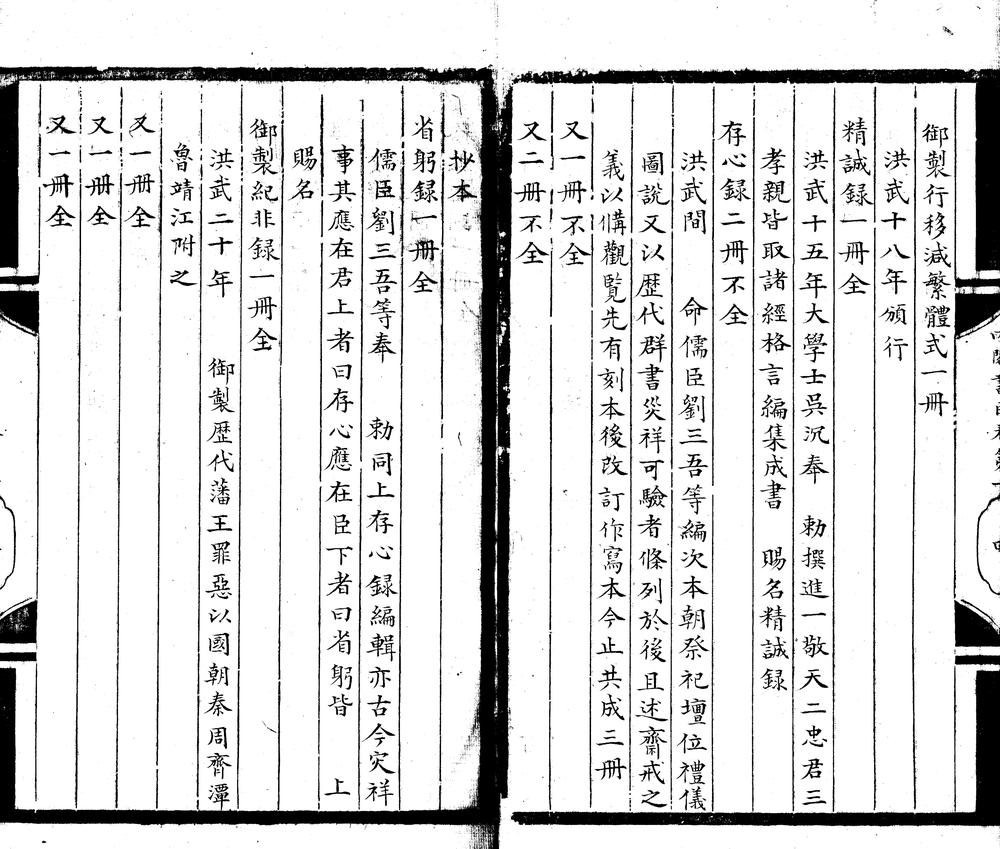 御製行移減繁體式一冊
洪武十八年頒行
精誠録一冊全
洪武十五年大學士吳沉奉　勅撰進一敬天二忠君三
孝親皆取諸經格言編集成書　賜名精誠録
存心録二冊不全
洪武間　命儒臣劉三吾等編次本朝祭祀壇位禮儀
圖說又以歴代群書災祥可驗者條列於後且述齋戒之
義以備觀覽先有刻本後改訂作寫本今止共成三冊
又一冊不全
又二冊不全
抄本
省躬録一冊全
儒臣劉三吾等奉　勅同上存心録編輯亦古今災祥
事其應在君上者曰存心應在臣下者曰省躬皆　上
賜名
御製紀非録一冊全
洪武二十年　御製歴代藩王罪惡以國朝秦周齊潭
魯靖江附之
又一冊全
又一冊全
又一冊全